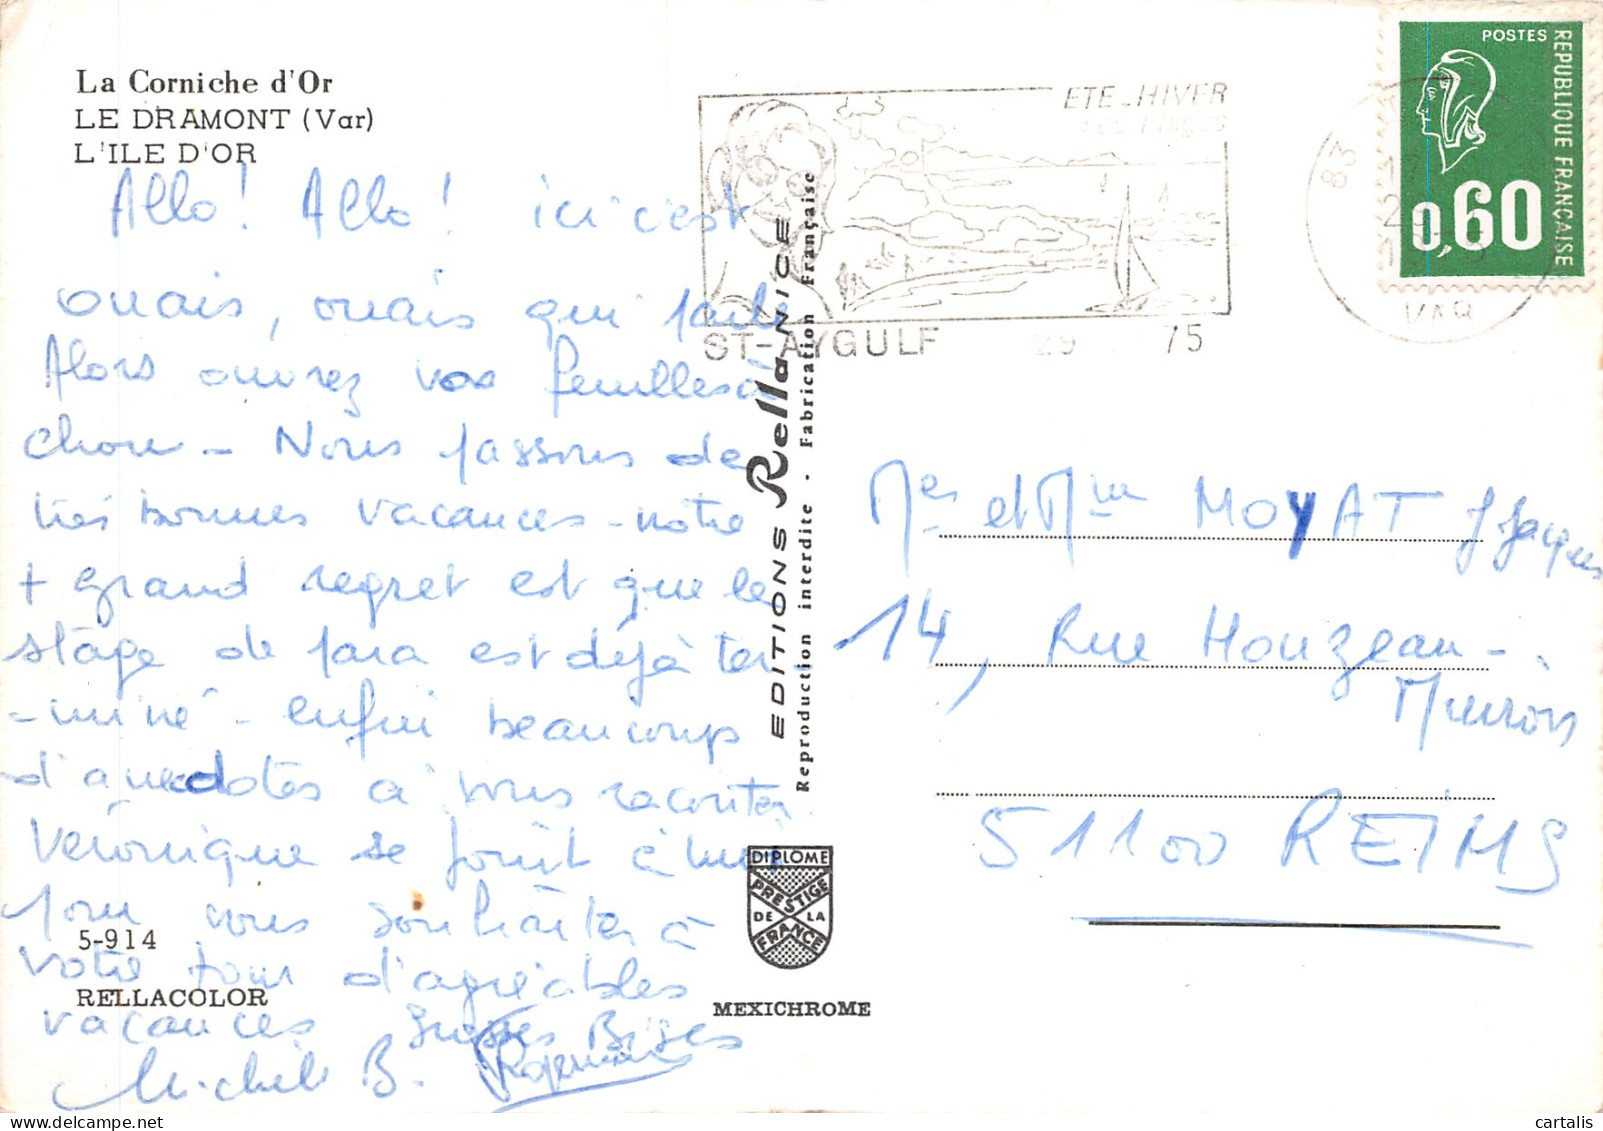 La Corniche d'Or
LE DRAMONT (Var)
L'ILE D'OR
Allo! Allo! ici c'est
ouais, ouais qui parle
Alors ouvrez vos feuilles à
chou - Nous passons de
très bonnes vacances - notre
+ grand regret est que le
stage de para est déjà ter-
-miné - enfin beaucoup
d'anecdotes à vous raconter
Véronique se joint à moi
pour vous souhaiter à
votre tour d'agréables
vacances Grosses Bises
Michèle B.
5-914
RELLACOLOR
EDITIONS Rella NICE
Reproduction interdite - Fabrication Française
DIPLOME
PRESTIGE
DE LA
FRANCE
MEXICHROME
ETE-HIVER
ST-AYGULF 29 75
83
VAR
POSTES
REPUBLIQUE FRANÇAISE
0,60
Mer et Mme MOYAT J Jacques
14, Rue Houzeau-
Muiron
51100 REIMS
cartalis
www.delcampe.net